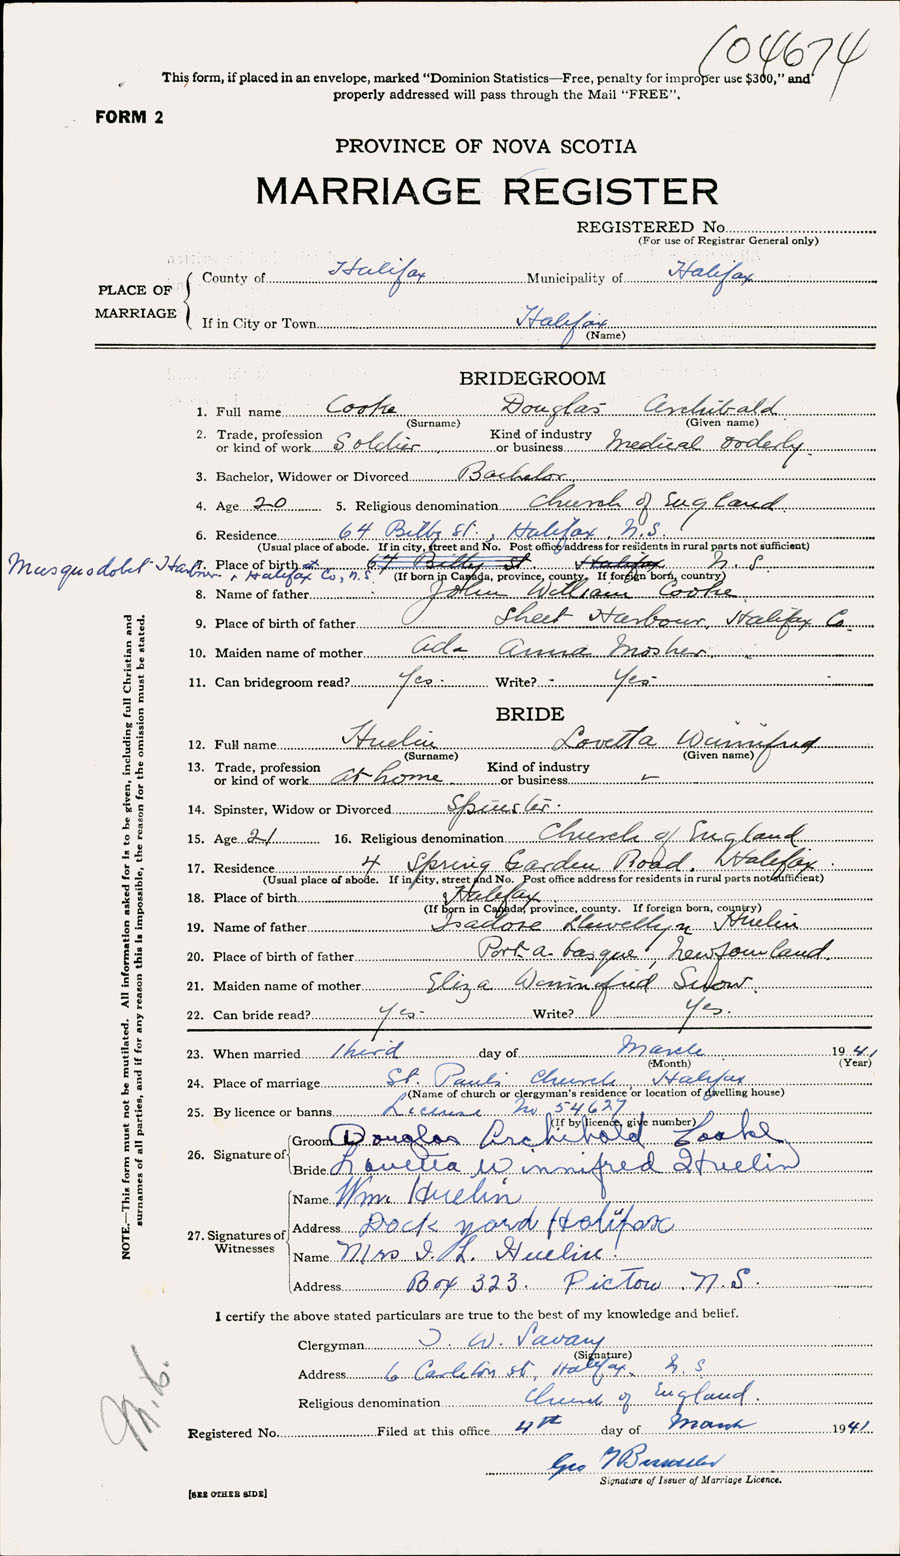 104674
This form, if placed in an envelope, marked "Dominion Statistics—Free, penalty for improper use $300," and
properly addressed will pass through the Mail "FREE".
FORM 2
PROVINCE OF NOVA SCOTIA
MARRIAGE REGISTER
REGISTERED No.
(For use of Registrar General only)
PLACE OF MARRIAGE
County of Halifax Municipality of Halifax
If in City or Town Halifax
(Name)
BRIDEGROOM
1. Full name Cooke Douglas Archibald
(Surname) (Given name)
2. Trade, profession or kind of work Soldier Kind of industry or business Medical orderly
3. Bachelor, Widower or Divorced Bachelor
4. Age 20 5. Religious denomination Church of England
6. Residence 64 Bilby St., Halifax, N.S.
(Usual place of abode. If in city, street and No. Post office address for residents in rural parts not sufficient)
7. Place of birth at 64 Bilby St Halifax N.S.
Musquodobit Harbour, Halifax Co, N.S.
(If born in Canada, province, county. If foreign born, country)
8. Name of father John William Cooke
9. Place of birth of father Sheet Harbour, Halifax Co.
10. Maiden name of mother Ada Anna Mosher
11. Can bridegroom read? Yes- Write? - Yes-
BRIDE
12. Full name Huelin Lovetta Winnifred
(Surname) (Given name)
13. Trade, profession or kind of work at home Kind of industry or business
14. Spinster, Widow or Divorced Spinster
15. Age 21 16. Religious denomination Church of England
17. Residence 4 Spring Garden Road, Halifax
(Usual place of abode. If in city, street and No. Post office address for residents in rural parts not sufficient)
18. Place of birth Halifax
(If born in Canada, province, county. If foreign born, country)
19. Name of father Isadore Llewellyn Huelin
20. Place of birth of father Port-a-basque, Newfoundland
21. Maiden name of mother Eliza Winnifred Snow
22. Can bride read? Yes- Write? Yes.
23. When married third day of March 1941
(Month) (Year)
24. Place of marriage St. Paul's Church, Halifax
(Name of church or clergyman's residence or location of dwelling house)
25. By licence or banns License No 54627
(If by licence, give number)
26. Signature of
Groom Douglas Archibald Cooke
Bride Lovetta Winnifred Huelin
27. Signatures of Witnesses
Name Wm. Huelin
Address Dock yard Halifax
Name Mrs I. L. Huelin
Address Box 323. Pictou N.S.
I certify the above stated particulars are true to the best of my knowledge and belief.
Clergyman T. W. Savary
(Signature)
Address 6 Carleton st, Halifax, N.S
Religious denomination Church of England
Registered No. Filed at this office 4th day of March 1941
Geo
Signature of Issuer of Marriage Licence.
[SEE OTHER SIDE]
NOTE.—This form must not be mutilated. All information asked for is to be given, including full Christian and
surnames of all parties, and if for any reason this is impossible, the reason for the omission must be stated.